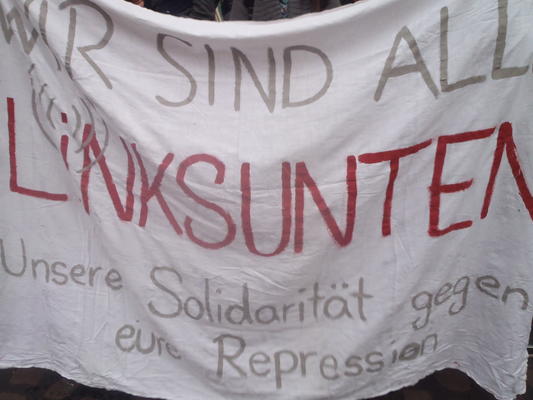 WIR SIND ALL
LiNKSUNTEN
Unsere Solidarität gegen
eure Repression